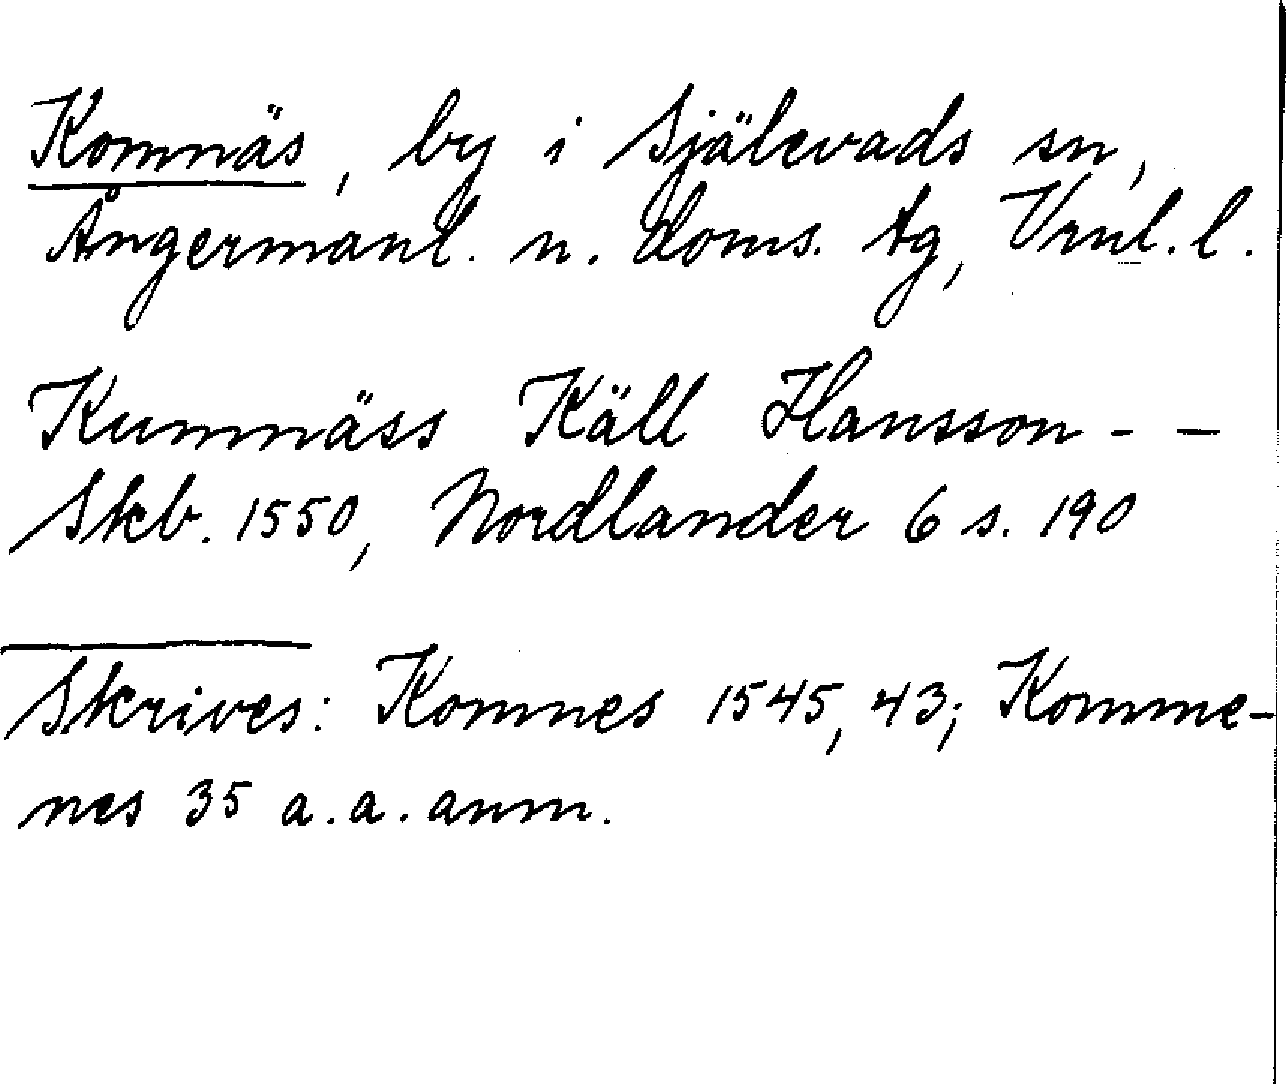 Komnäs, by i Själevads sn,
Ångermanl. n. doms. tg, Vrnl. l.
Kumnäss Käll Hansson - -
Skb. 1550, Nordlander 6 s. 190
Skrives: Komnes 1545, 43; Komme-
nes 35 a. a. anm.